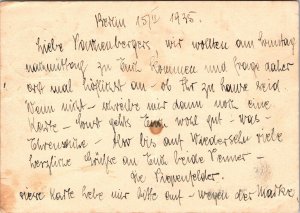 Berlin 15/II 1935.
Liebe wir wollten am Sonntag
nachmittag zu Euch kommen und frage daher
erst mal höflichst an - ob Ihr zu Hause seid.
Wenn nicht - schreibe mir dann noch eine
Karte - Sonst gehts Euch wohl gut - was -
Also bis auf Wiedersehn viele
herzliche Grüße an Euch beide
die Piepenfelder.
diese Karte hebe mir bitte auf - wegen der Marke.